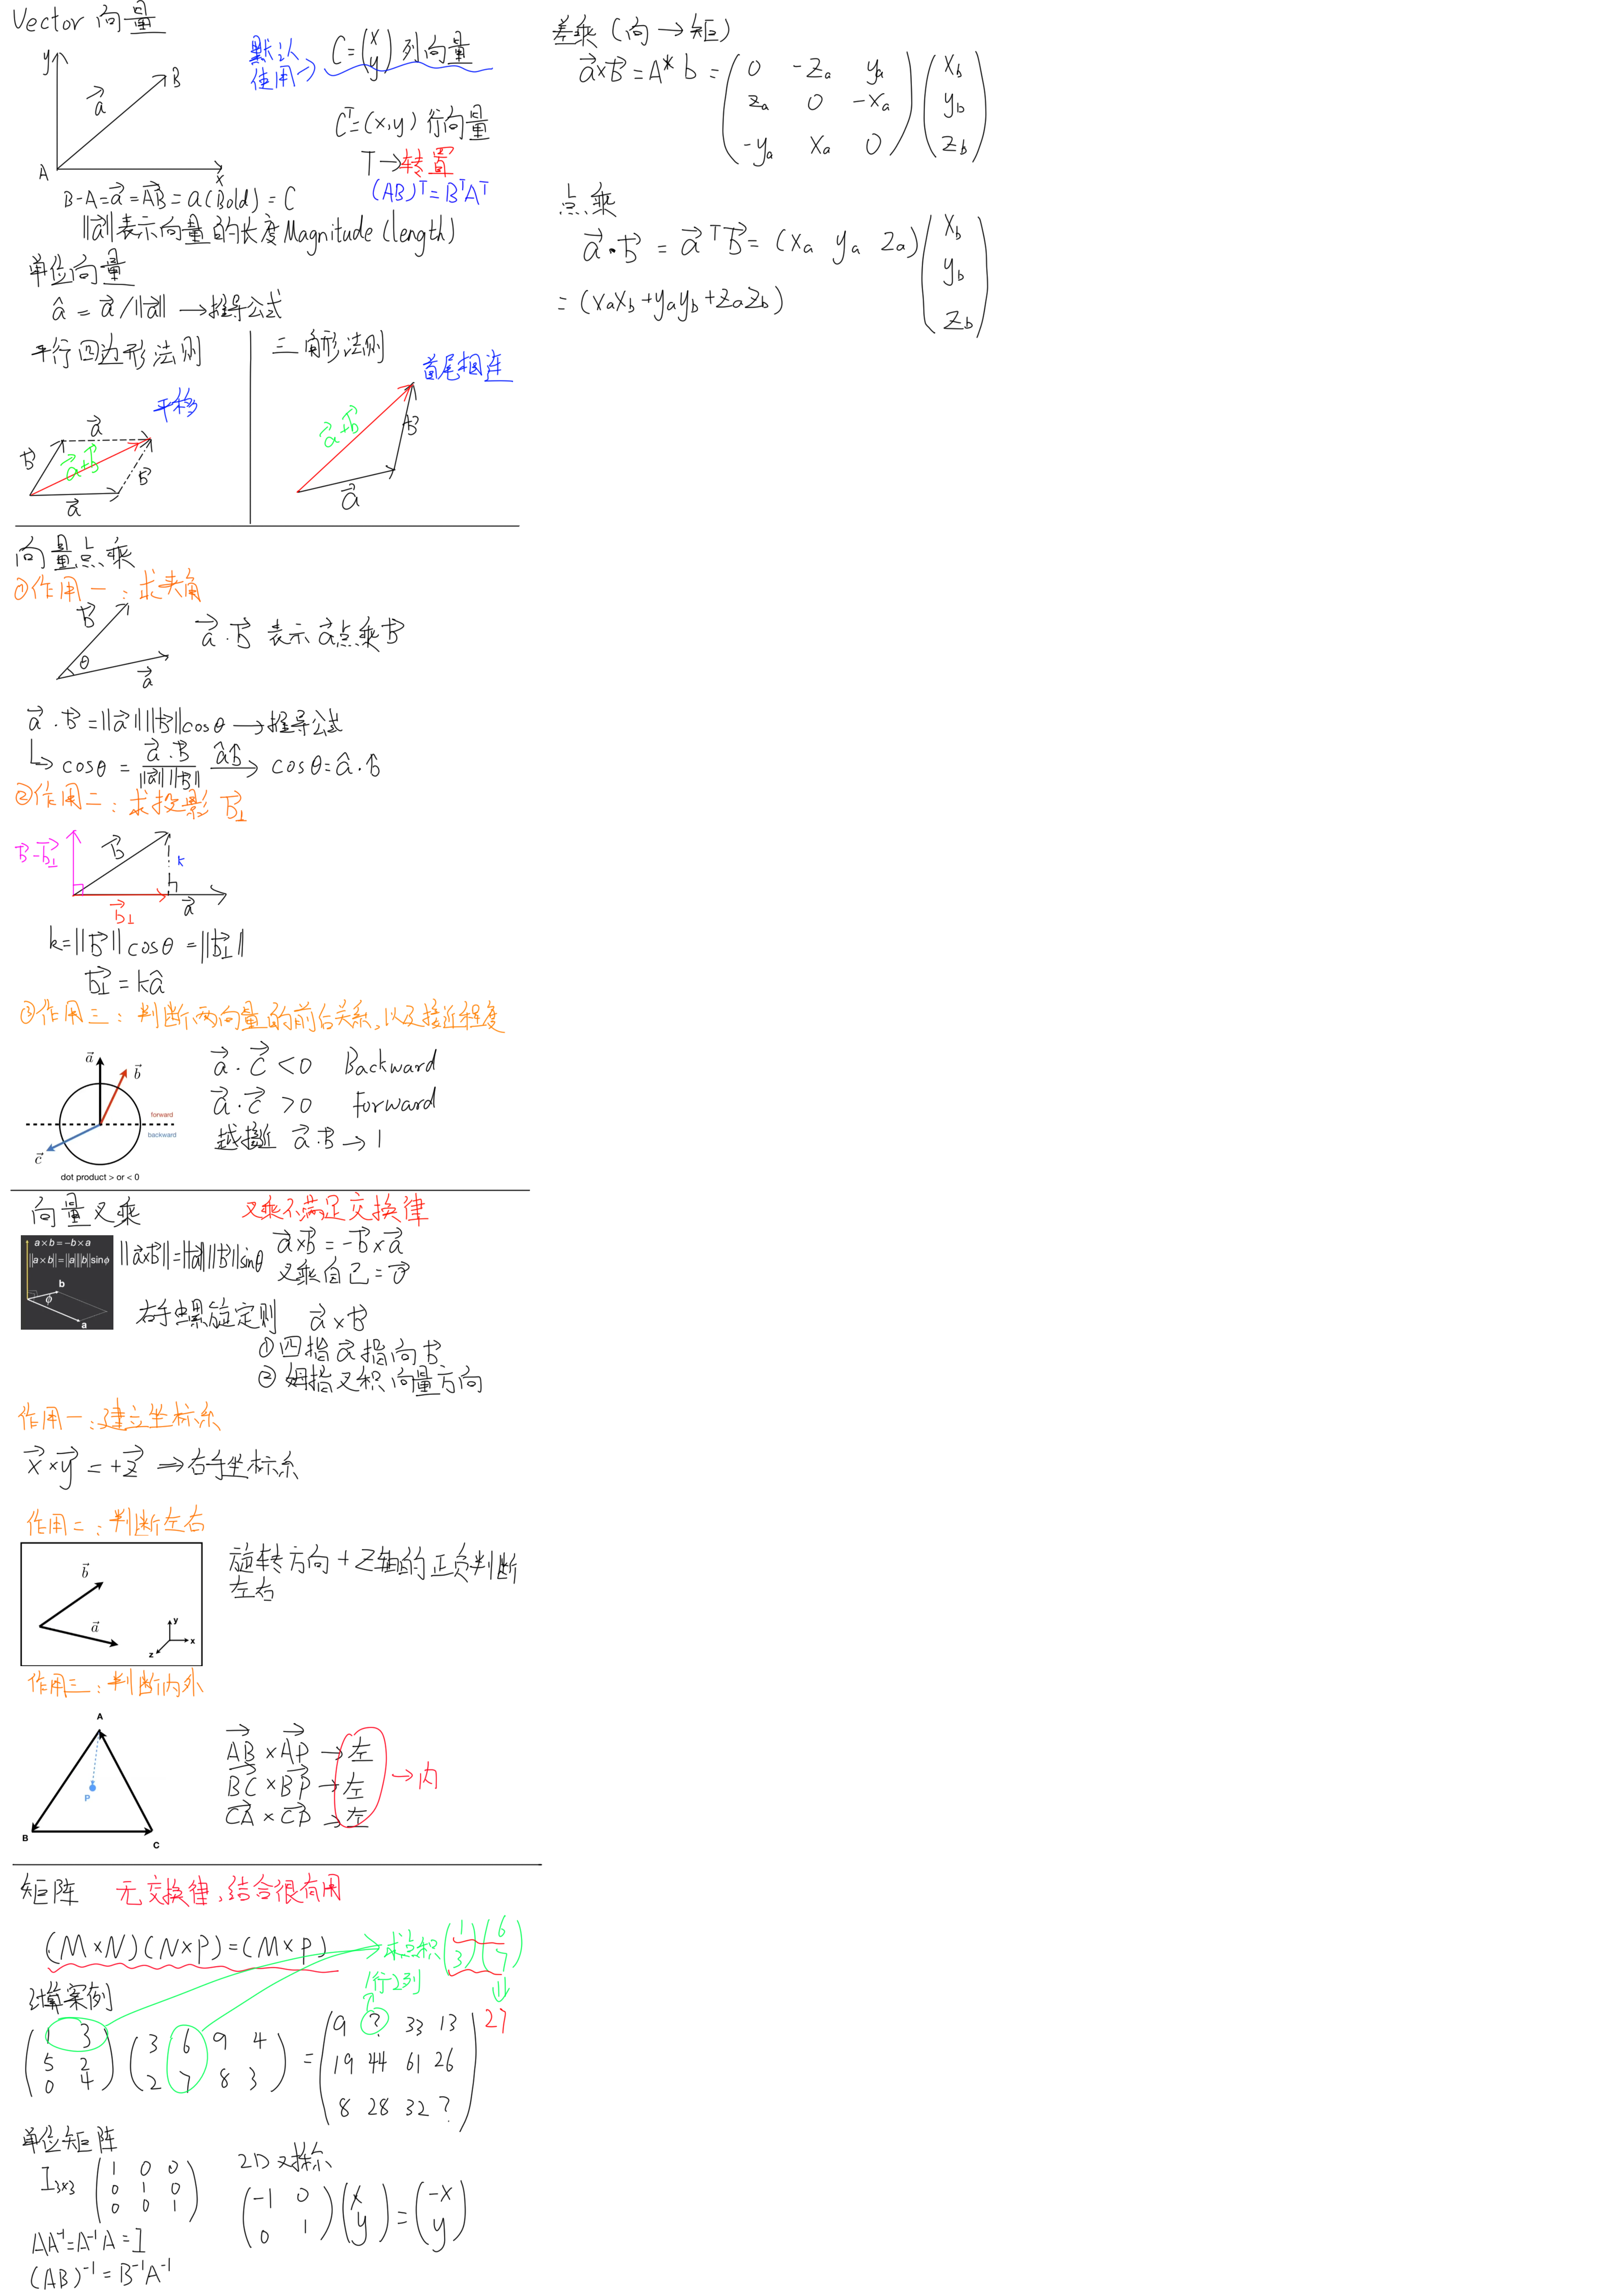 Vector 向量
y
B
a
A
x
默认
使用→
C=(x y) 列向量
Cᵀ=(x,y) 行向量
T→转置
(AB)ᵀ=BᵀAᵀ
B-A=a⃗=AB⃗=a(Bold)=C
||a⃗||表示向量的长度Magnitude(length)
单位向量
â=a⃗/||a⃗|| →推导公式
平行四边形法则
平移
a⃗
b⃗
a⃗+b⃗
b⃗
a⃗
三角形法则
首尾相连
a⃗+b⃗
b⃗
a⃗
向量点乘
①作用一:求夹角
b⃗
θ
a⃗
a⃗·b⃗ 表示 a⃗点乘b⃗
a⃗·b⃗=||a⃗|| ||b⃗||cosθ →推导公式
↳ cosθ = a⃗·b⃗ / ||a⃗|| ||b⃗|| âb̂→ cosθ=â·b̂
②作用二:求投影 b⃗⊥
b⃗-b⃗⊥
b⃗
k
b⃗⊥
a⃗
k=||b⃗||cosθ=||b⃗⊥||
b⃗⊥=kâ
③作用三:判断两向量的前后关系,以及接近程度
a⃗
b⃗
forward
backward
c⃗
dot product > or < 0
a⃗·c⃗ <0 Backward
a⃗·c⃗ >0 Forward
越接近 a⃗·b⃗→1
向量叉乘
叉乘不满足交换律
a×b=-b×a
||a×b||=||a||||b||sinϕ
b
ϕ
a
||a⃗×b⃗||=||a⃗|| ||b⃗||sinθ
a⃗×b⃗=-b⃗×a⃗
叉乘自己=0⃗
右手螺旋定则 a⃗×b⃗
①四指a⃗指向b⃗
②姆指叉积向量方向
作用一:建立坐标系
x⃗×y⃗=+z⃗ ⇒右手坐标系
作用二:判断左右
b⃗
a⃗
y
x
z
旋转方向+Z轴的正负判断
左右
作用三:判断内外
A
P
B
C
AB⃗×AP⃗→左
BC⃗×BP⃗→左
CA⃗×CP⃗→左
→内
矩阵 无交换律,结合很有用
(M×N)(N×P)=(M×P)
→求点积(1 3)(6 7)
1行2列
⇓
27
计算案例
1 3
5 2
0 4
3 6 9 4
2 7 8 3
=
9 ? 33 13
19 44 61 26
8 28 32 ?
单位矩阵
I3×3
1 0 0
0 1 0
0 0 1
AA⁻¹=A⁻¹A=I
(AB)⁻¹=B⁻¹A⁻¹
(-1 0
0 1)(x y)=(-x y)
差乘(向→矩)
a⃗×b⃗=A*b=
0 -za ya
za 0 -xa
-ya xa 0
xb
yb
zb
点乘
a⃗·b⃗=a⃗ᵀb⃗=(xa ya za)
xb
yb
zb
=(xaxb+yayb+zazb)